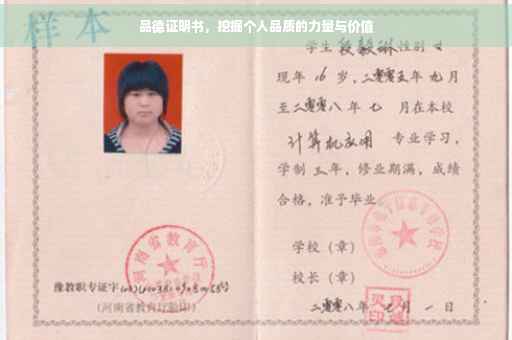 品德证明书，挖掘个人品质的力量与价值
样本
学生段毅琳性别女
现年16岁，二零零五年九月
至二零零八年七月在本校
计算机应用 专业学习，
学制三年，修业期满，成绩
合格，准予毕业。
学校（章）
校长（章）
二零零八年七月一日
河南省教育厅
豫教职专证字
（河南省教育厅验印）